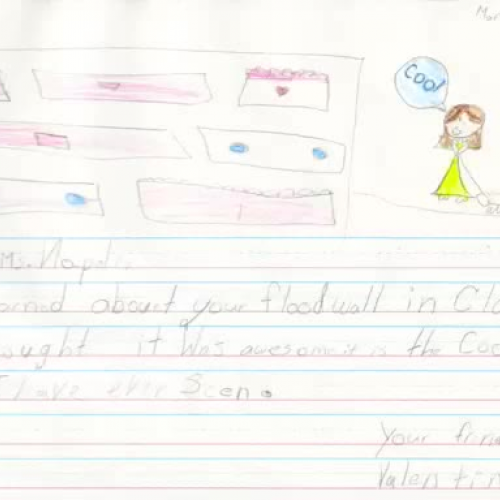 Mar
Cool
Ms. Napoli
arned about your floodwall in Cla
ought it was awesome it is the Coo
I have ever Seen.
Your frien
Valentin